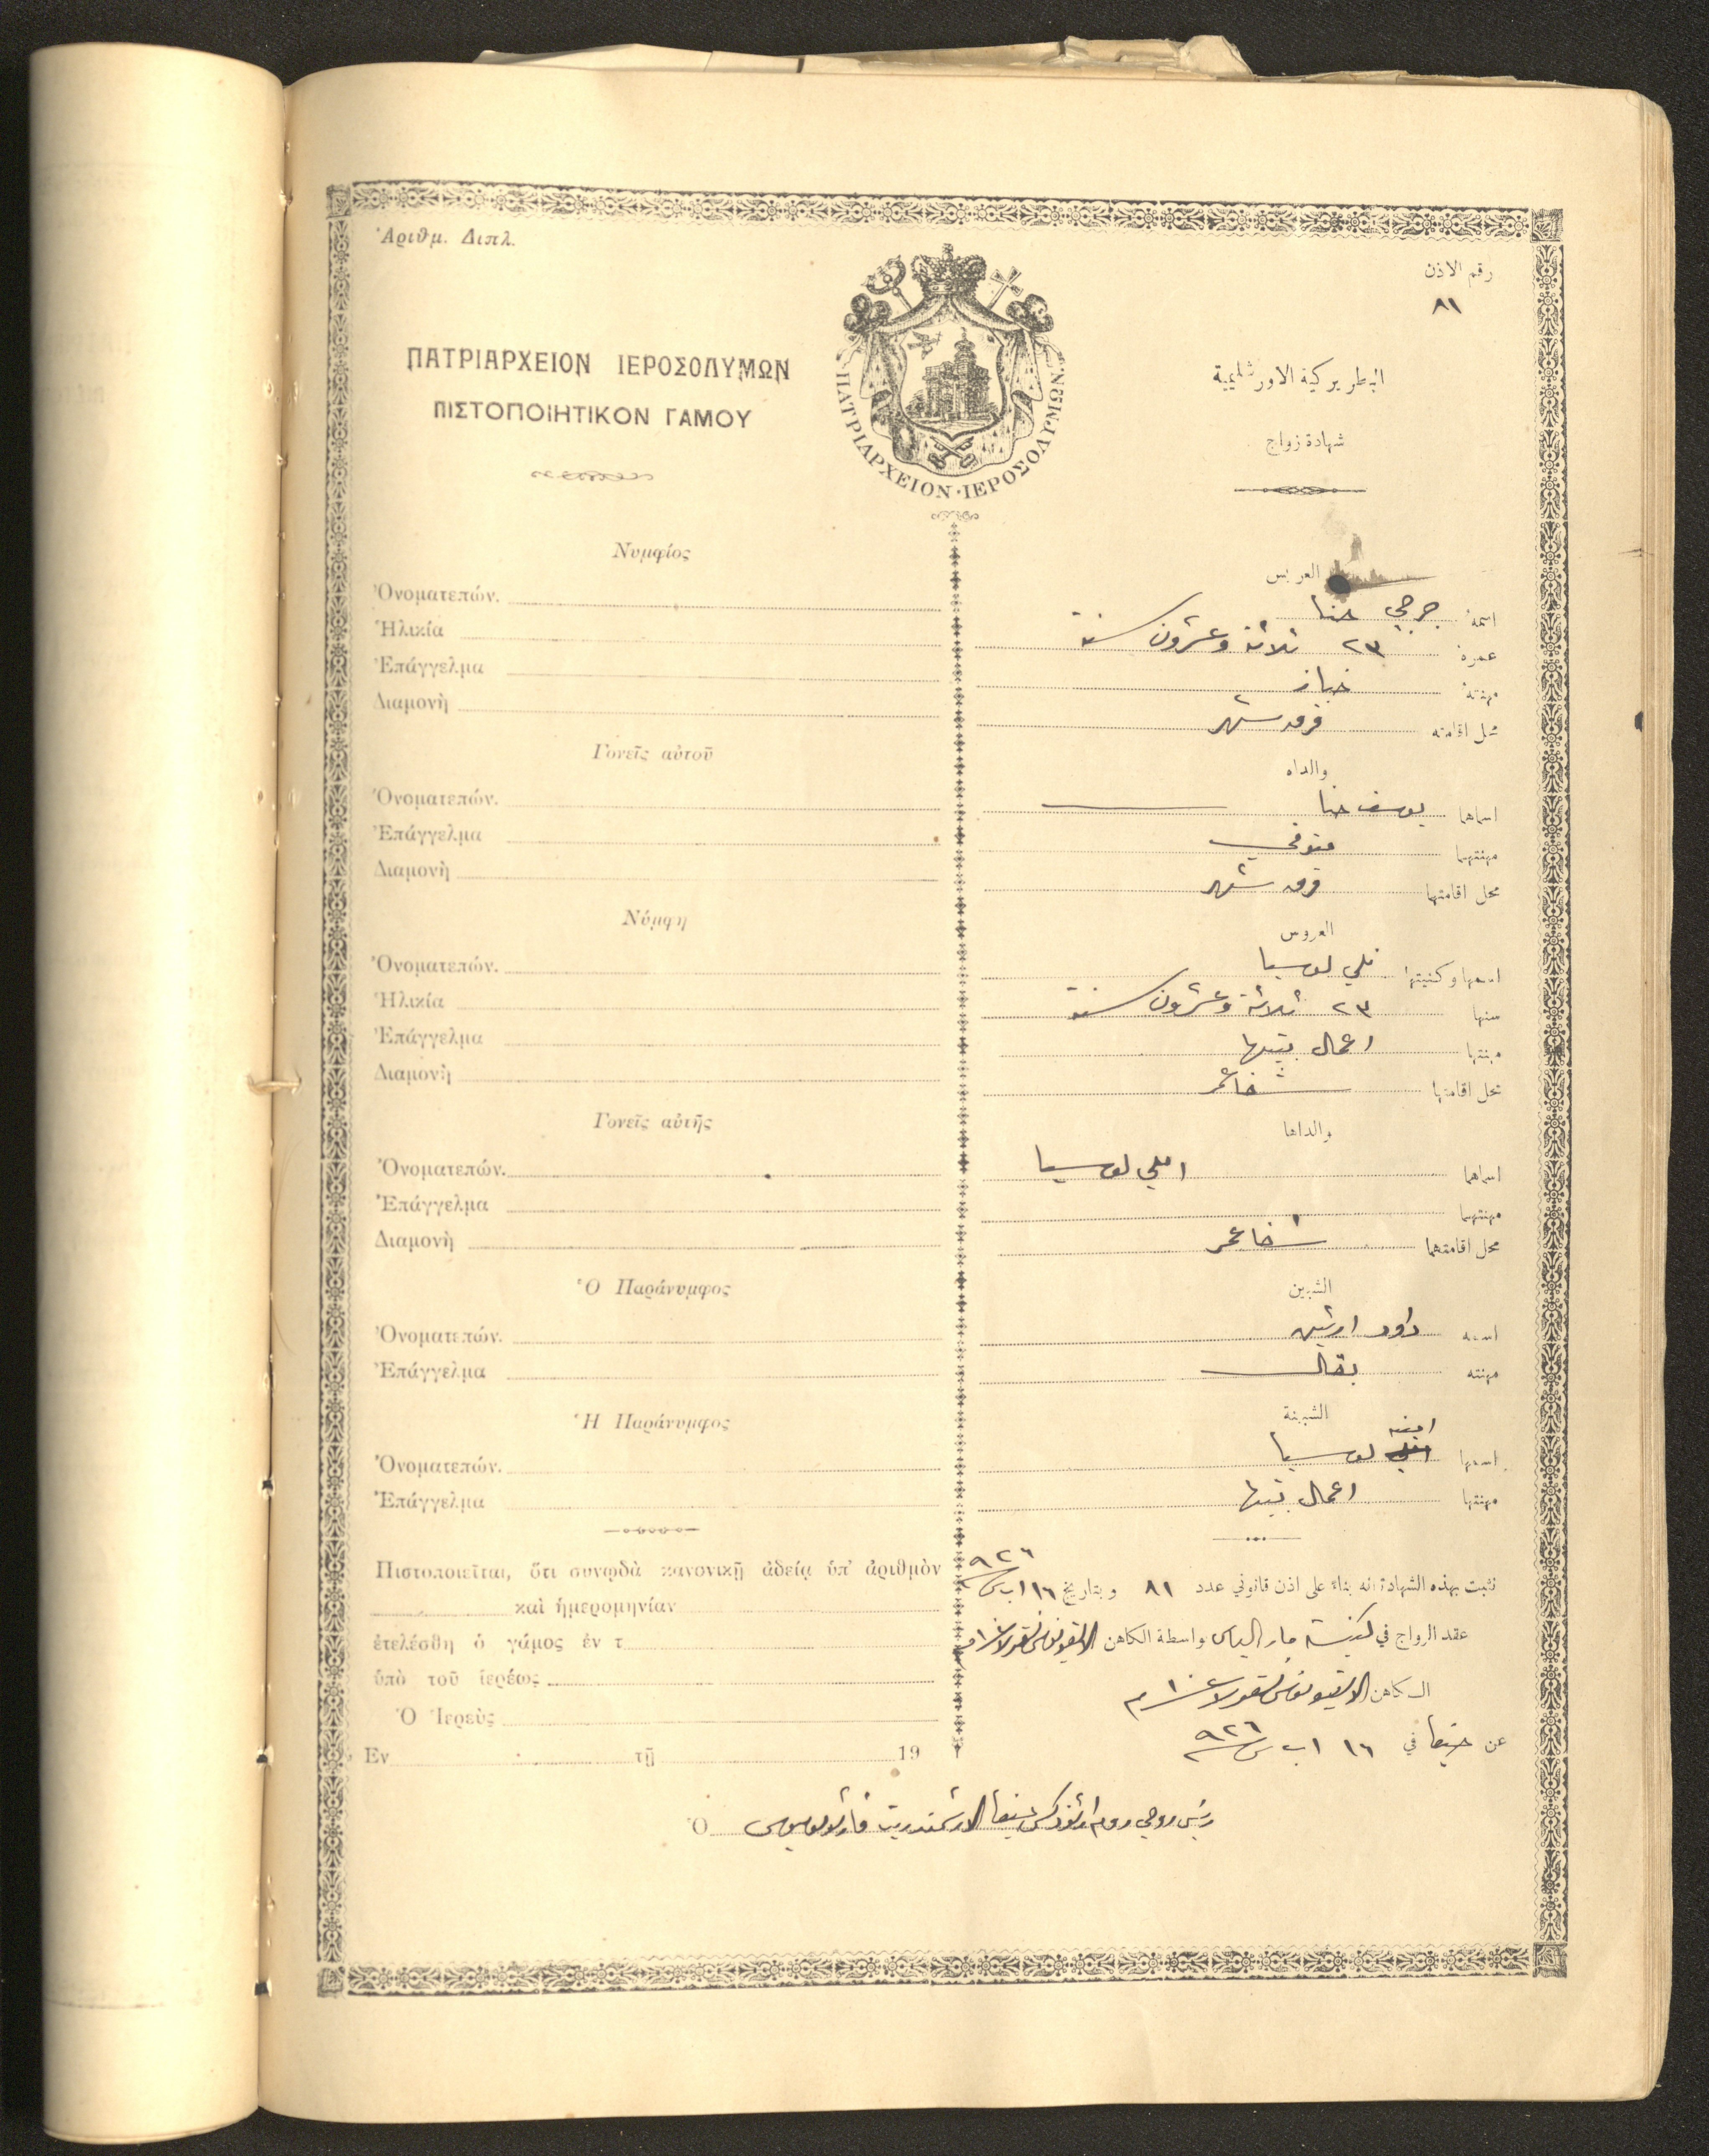 Ἀριθμ. Διπλ.
رقم الاذن
٨١
ΠΑΤΡΙΑΡΧΕΙΟΝ ΙΕΡΟΣΟΛΥΜΩΝ
ΠΙΣΤΟΠΟΙΗΤΙΚΟΝ ΓΑΜΟΥ
ΠΑΤΡΙΑΡΧΕΙΟΝ·ΙΕΡΟΣΟΛΥΜΩΝ.
البطريركية الاورشليمية
شهادة زواج
Νυμφίος
Ὀνοματεπών.
Ἡλικία
Ἐπάγγελμα
Διαμονὴ
Γονεῖς αὐτοῦ
Ὀνοματεπών.
Ἐπάγγελμα
Διαμονὴ
Νύμφη
Ὀνοματεπών.
Ἡλικία
Ἐπάγγελμα
Διαμονὴ
Γονεῖς αὐτῆς
Ὀνοματεπών.
Ἐπάγγελμα
Διαμονὴ
Ὁ Παράνυμφος
Ὀνοματεπών.
Ἐπάγγελμα
Ἡ Παράνυμφος
Ὀνοματεπών.
Ἐπάγγελμα
Πιστοποιεῖται, ὅτι συνῳδὰ κανονικῇ ἀδείᾳ ὑπ' ἀριθμὸν
καὶ ἡμερομηνίαν
ἐτελέσθη ὁ γάμος ἐν τ
ὑπὸ τοῦ ἱερέως
Ὁ Ἱερεὺς
Ἐν τῇ 19
العريس
اسمه جرجي حنا
عمره ٢٣ ثلاثة وعشرون سنة
مهنته خباز
محل اقامته
والداه
اسماهما يوسف حنا
مهنتهما متوفي
محل اقامتهما
العروس
اسمها وكنيتها لوسيا
سنها ٢٣ ثلاثة وعشرون سنة
مهنتها اعمال بيتها
محل اقامتها شفاعمر
والداها
اسماهما لوسيا
مهنتهما
محل اقامتهما شفاعمر
الشبين
اسمه داود
مهنته بقال
الشبينة
امينه
اسمها لوسيا
مهنتها اعمال بيتها
نثبت بهذه الشهادة انه بناء على اذن قانوني عدد ٨١ وبتاريخ ١٦ اب سنة ٩٢٦
عقد الزواج في كنيسة مار الياس واسطة الكاهن
الكاهن
عن حيفا في ١٦ اب سنة ٩٢٦
Ὁ رئيس روحي روم ارثوذكس حيفا الارشمندريت